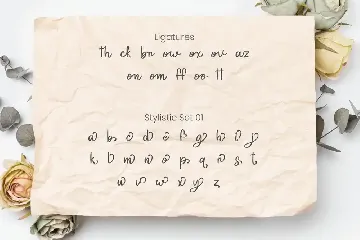 Ligatures
th ck br ow ox ov az
on om ff oo tt
Stylistic Set 01
a b c d e f g h i j
k l m n o p q r s t
u v w x y z